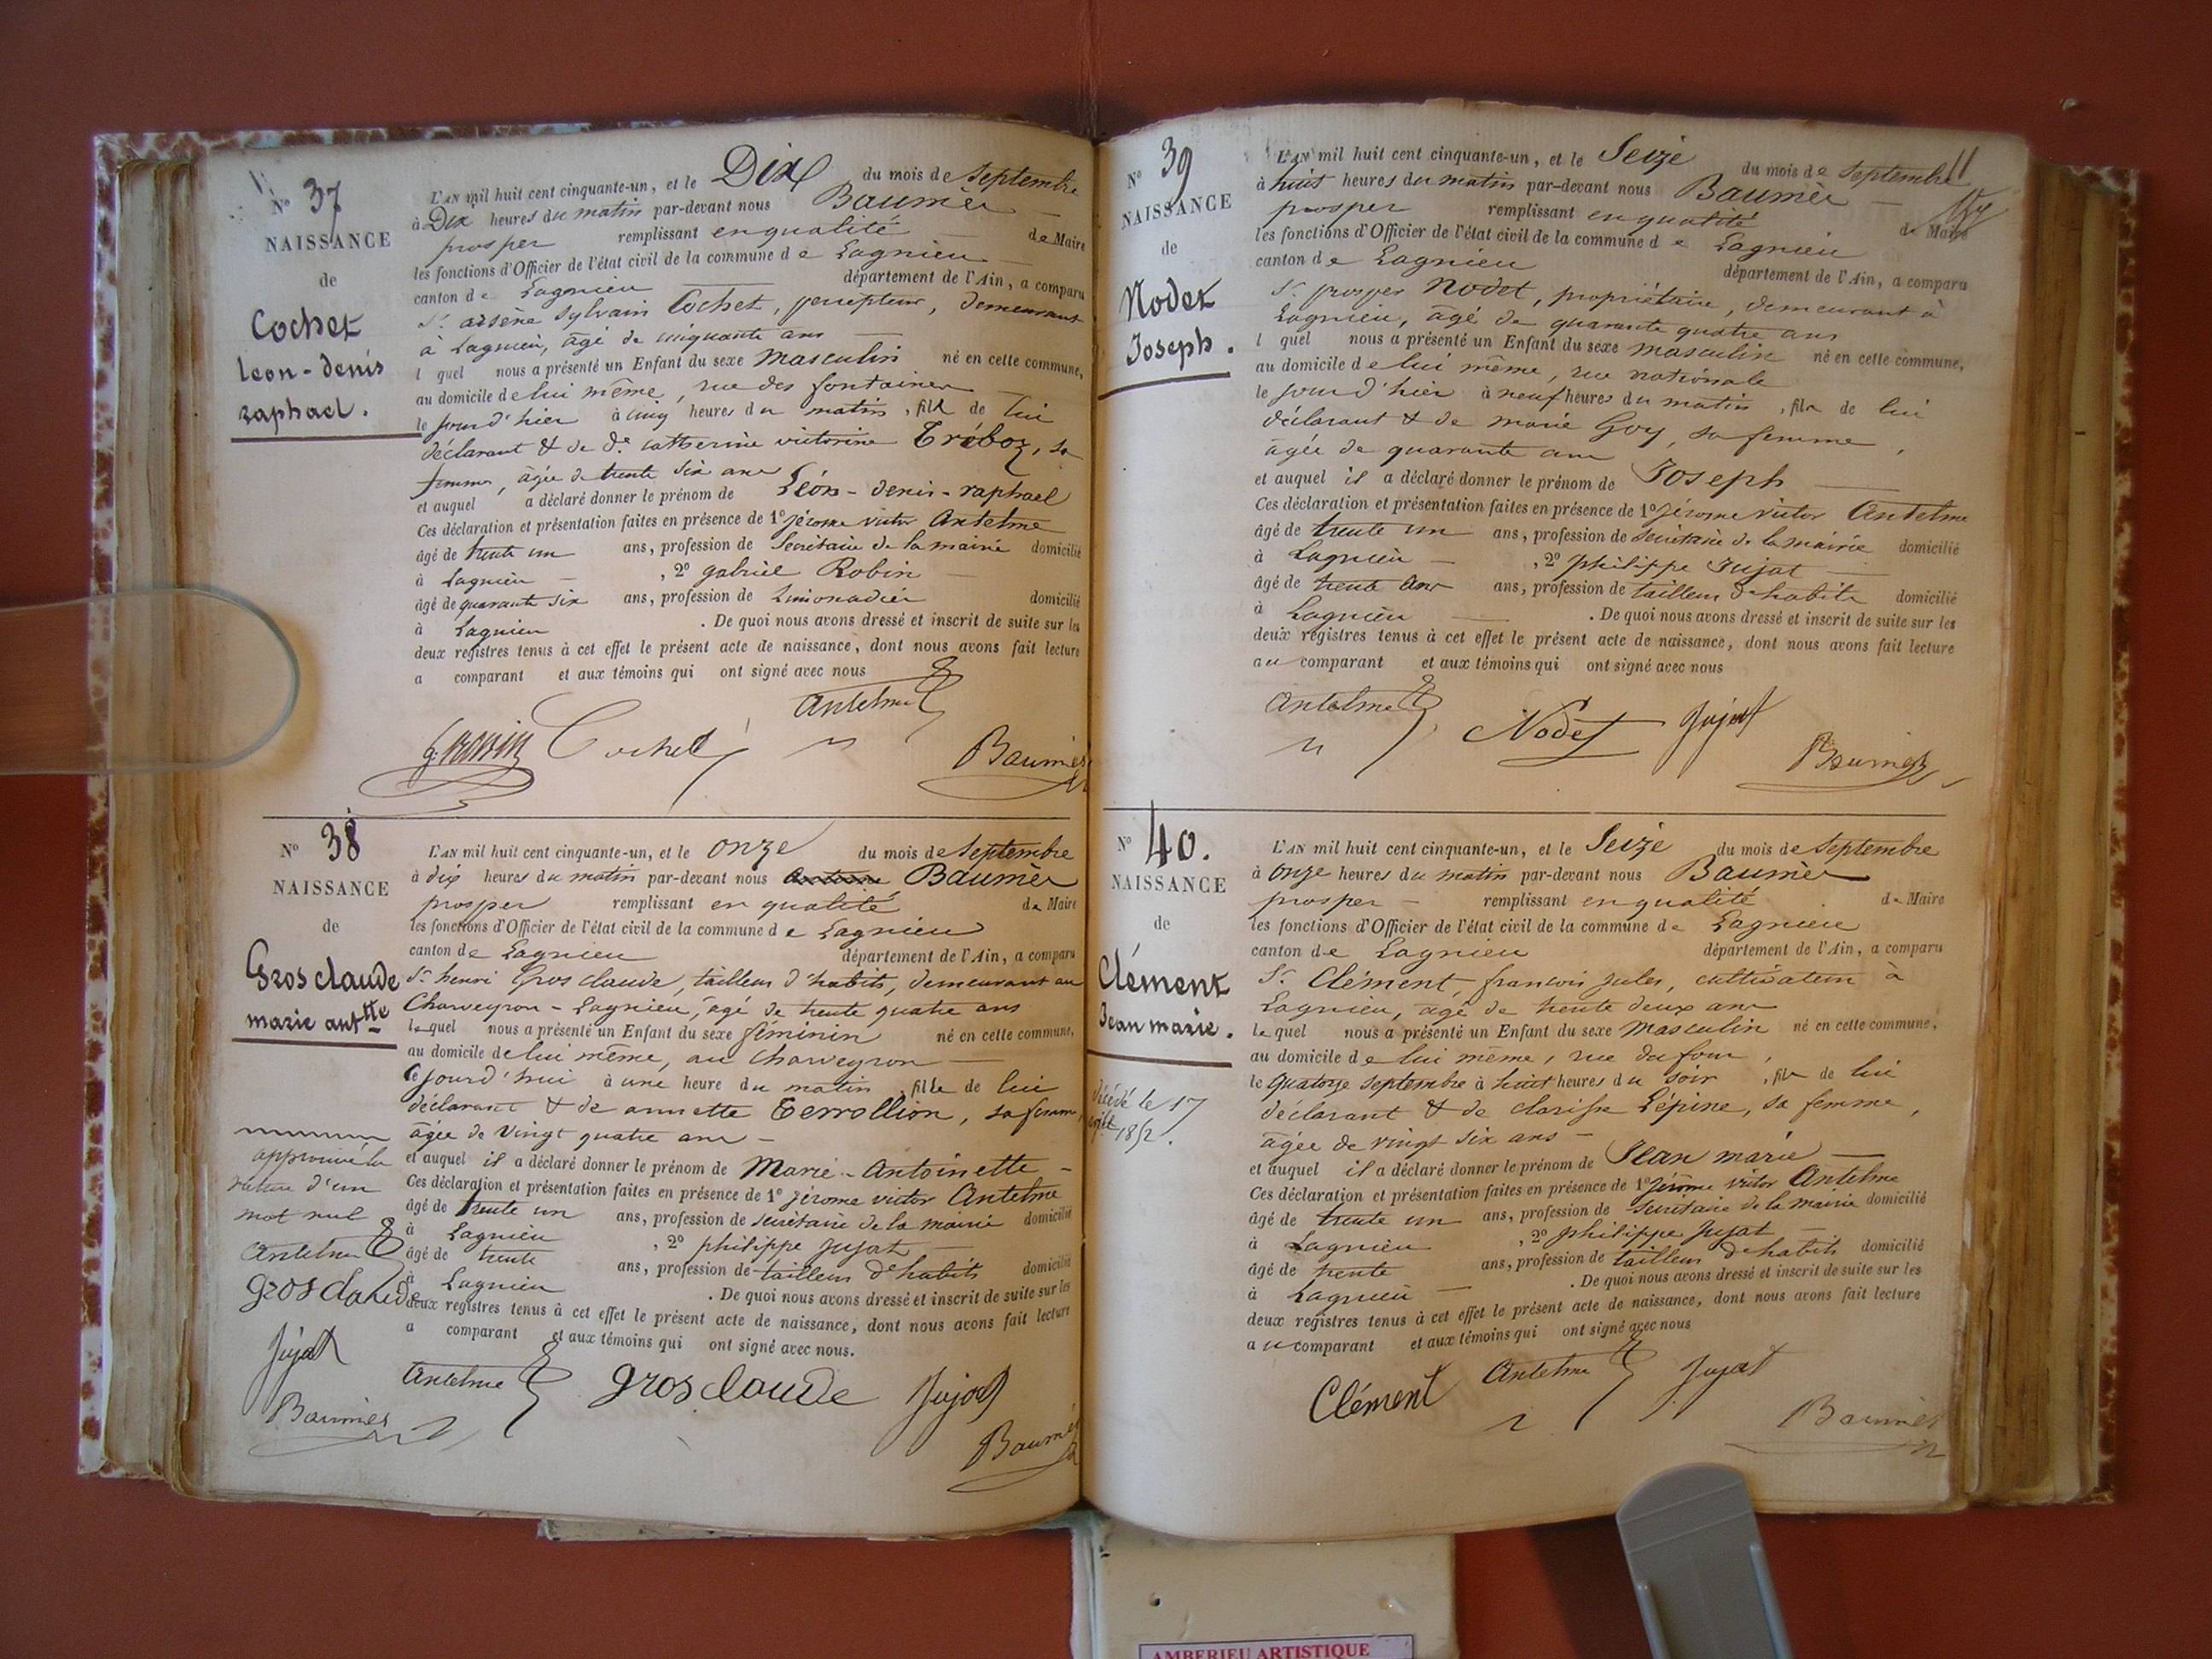 N° 37
NAISSANCE
de
Cochet
leon-denis
raphael.
L'AN mil huit cent cinquante-un, et le Dix du mois de Septembre
à Dix heures du matin par-devant nous Baumèr
prosper remplissant en qualité de Maire
les fonctions d'Officier de l'état civil de la commune de Lagnieu
canton de Lagnieu département de l'Ain, a comparu
Sr. arsène Sylvain Cochet, percepteur, demeurant
à Lagnieu, âgé de cinquante ans
l quel nous a présenté un Enfant du sexe masculin né en cette commune,
au domicile de lui même, rue des fontaines
le jour d'hier à cinq heures du matin, fils de lui
déclarant & de de. catherine victorine Tréboz, sa
femme, âgée de trente six ans
et auquel a déclaré donner le prénom de Léon-denis-raphael
Ces déclaration et présentation faites en présence de 1° jérome victor Antelme
âgé de trente un ans, profession de Secrétaire de la mairie domicilié
à Lagnieu, 2° gabriel Robin
âgé de quarante six ans, profession de Limonadier domicilié
à Lagnieu. De quoi nous avons dressé et inscrit de suite sur les
deux registres tenus à cet effet le présent acte de naissance, dont nous avons fait lecture
a comparant et aux témoins qui ont signé avec nous
Antelme
G. Robin Cochet Baumèr
N° 38
NAISSANCE
de
Gros claude
marie anttte
L'AN mil huit cent cinquante-un, et le onze du mois de Septembre
à dix heures du matin par-devant nous Antoine Baumèr
prosper remplissant en qualité de Maire
les fonctions d'Officier de l'état civil de la commune de Lagnieu
canton de Lagnieu département de l'Ain, a comparu
Sr. henri Gros claude, tailleur d'habits, demeurant au
Charveyron-Lagnieu, âgé de trente quatre ans
lequel nous a présenté un Enfant du sexe féminin né en cette commune,
au domicile de lui même, au Charveyron
le jourd'hui à une heure du matin, fille de lui
déclarant & de annette Terrollion, sa femme,
âgée de Vingt quatre ans
et auquel il a déclaré donner le prénom de Marie-Antoinette
Ces déclaration et présentation faites en présence de 1° jérome victor Antelme
âgé de trente un ans, profession de secrétaire de la mairie domicilié
à Lagnieu, 2° philippe Jujat
âgé de trente ans, profession de tailleur d'habits domicilié
à Lagnieu. De quoi nous avons dressé et inscrit de suite sur les
deux registres tenus à cet effet le présent acte de naissance, dont nous avons fait lecture
a comparant et aux témoins qui ont signé avec nous.
approuvé la
rature d'un
mot nul
Antelme
gros claude
Jujat
Baumèr
Antelme gros claude Jujat
Baumèr
11
N° 39
NAISSANCE
de
Nodet
Joseph.
L'AN mil huit cent cinquante-un, et le Seize du mois de Septembre
à huit heures du matin par-devant nous Baumèr
prosper remplissant en qualité de Maire
les fonctions d'Officier de l'état civil de la commune de Lagnieu
canton de Lagnieu département de l'Ain, a comparu
Sr. prosper Nodet, propriétaire, demeurant à
Lagnieu, âgé de quarante quatre ans
l quel nous a présenté un Enfant du sexe masculin né en cette commune,
au domicile de lui même, rue nationale
le jour d'hier à neuf heures du matin, fils de lui
déclarant & de marie Goy, sa femme,
âgée de quarante ans
et auquel il a déclaré donner le prénom de Joseph
Ces déclaration et présentation faites en présence de 1° jérome victor Antelme
âgé de trente un ans, profession de secrétaire de la mairie domicilié
à Lagnieu, 2° philippe Jujat
âgé de trente ans, profession de tailleur d'habits domicilié
à Lagnieu. De quoi nous avons dressé et inscrit de suite sur les
deux registres tenus à cet effet le présent acte de naissance, dont nous avons fait lecture
au comparant et aux témoins qui ont signé avec nous
Antelme Nodet Jujat
Baumèr
N° 40.
NAISSANCE
de
Clément
Jean marie.
décédé le 17
1852.
L'AN mil huit cent cinquante-un, et le Seize du mois de Septembre
à onze heures du matin par-devant nous Baumèr
prosper remplissant en qualité de Maire
les fonctions d'Officier de l'état civil de la commune de Lagnieu
canton de Lagnieu département de l'Ain, a comparu
Sr. Clément, francois jules, cultivateur à
Lagnieu, âgé de trente deux ans
le quel nous a présenté un Enfant du sexe Masculin né en cette commune,
au domicile de lui même, rue du four,
le quatorze septembre à huit heures du soir, fils de lui
déclarant & de clarisse Lépine, sa femme,
âgée de vingt six ans
et auquel il a déclaré donner le prénom de Jean marie
Ces déclaration et présentation faites en présence de 1° jérôme victor Antelme
âgé de trente un ans, profession de Secrétaire de la mairie domicilié
à Lagnieu, 2° philippe Jujat
âgé de trente ans, profession de tailleur d'habits domicilié
à Lagnieu. De quoi nous avons dressé et inscrit de suite sur les
deux registres tenus à cet effet le présent acte de naissance, dont nous avons fait lecture
au comparant et aux témoins qui ont signé avec nous
Clément Antelme Jujat
Baumèr
AMBERIEU ARTISTIQUE